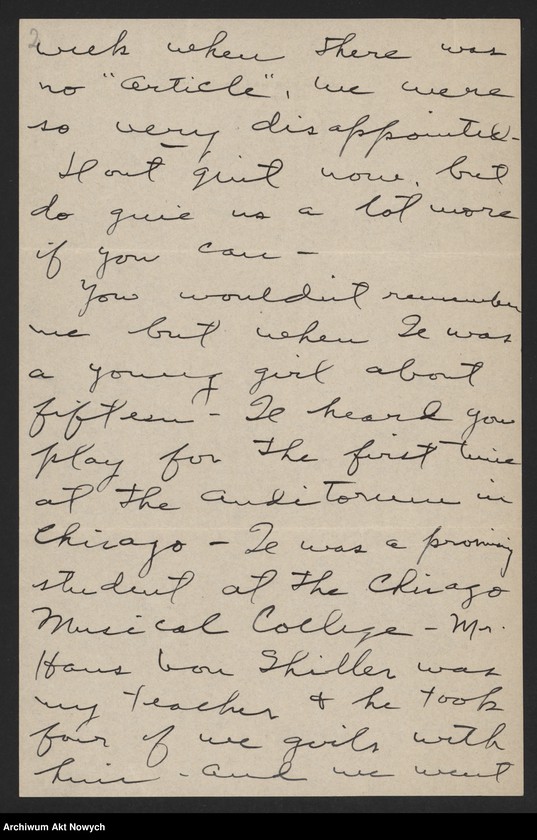 2
week when there was
no "article", we were
so very disappointed -
Dont quit now. but
do give us a lot more
if you can -
You wouldn't remember
me but when I was
a young girl about
fifteen - I heard you
play for the first time
at the auditorium in
Chicago - I was a promising
student at the Chicago
Musical College - Mr.
Hans von Shiller was
my teacher & he took
four of we girls with
him - and we went
Archiwum Akt Nowych